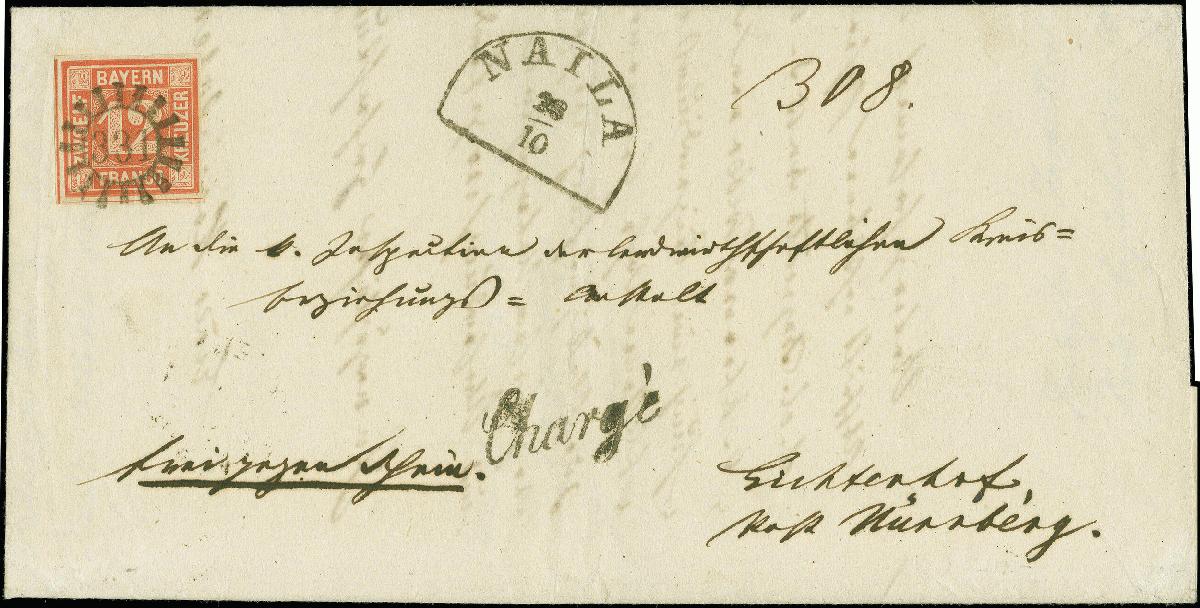 BAYERN
12
ZWOELF
KREUZER
FRANCO
331
NAILA
28
10
308.
An die k. Inspection der landwirthschaftlichen Kreis=
erziehungs= Anstalt
Chargè
frei gegen Schein.
Lichtenhof,
Post Nürnberg.